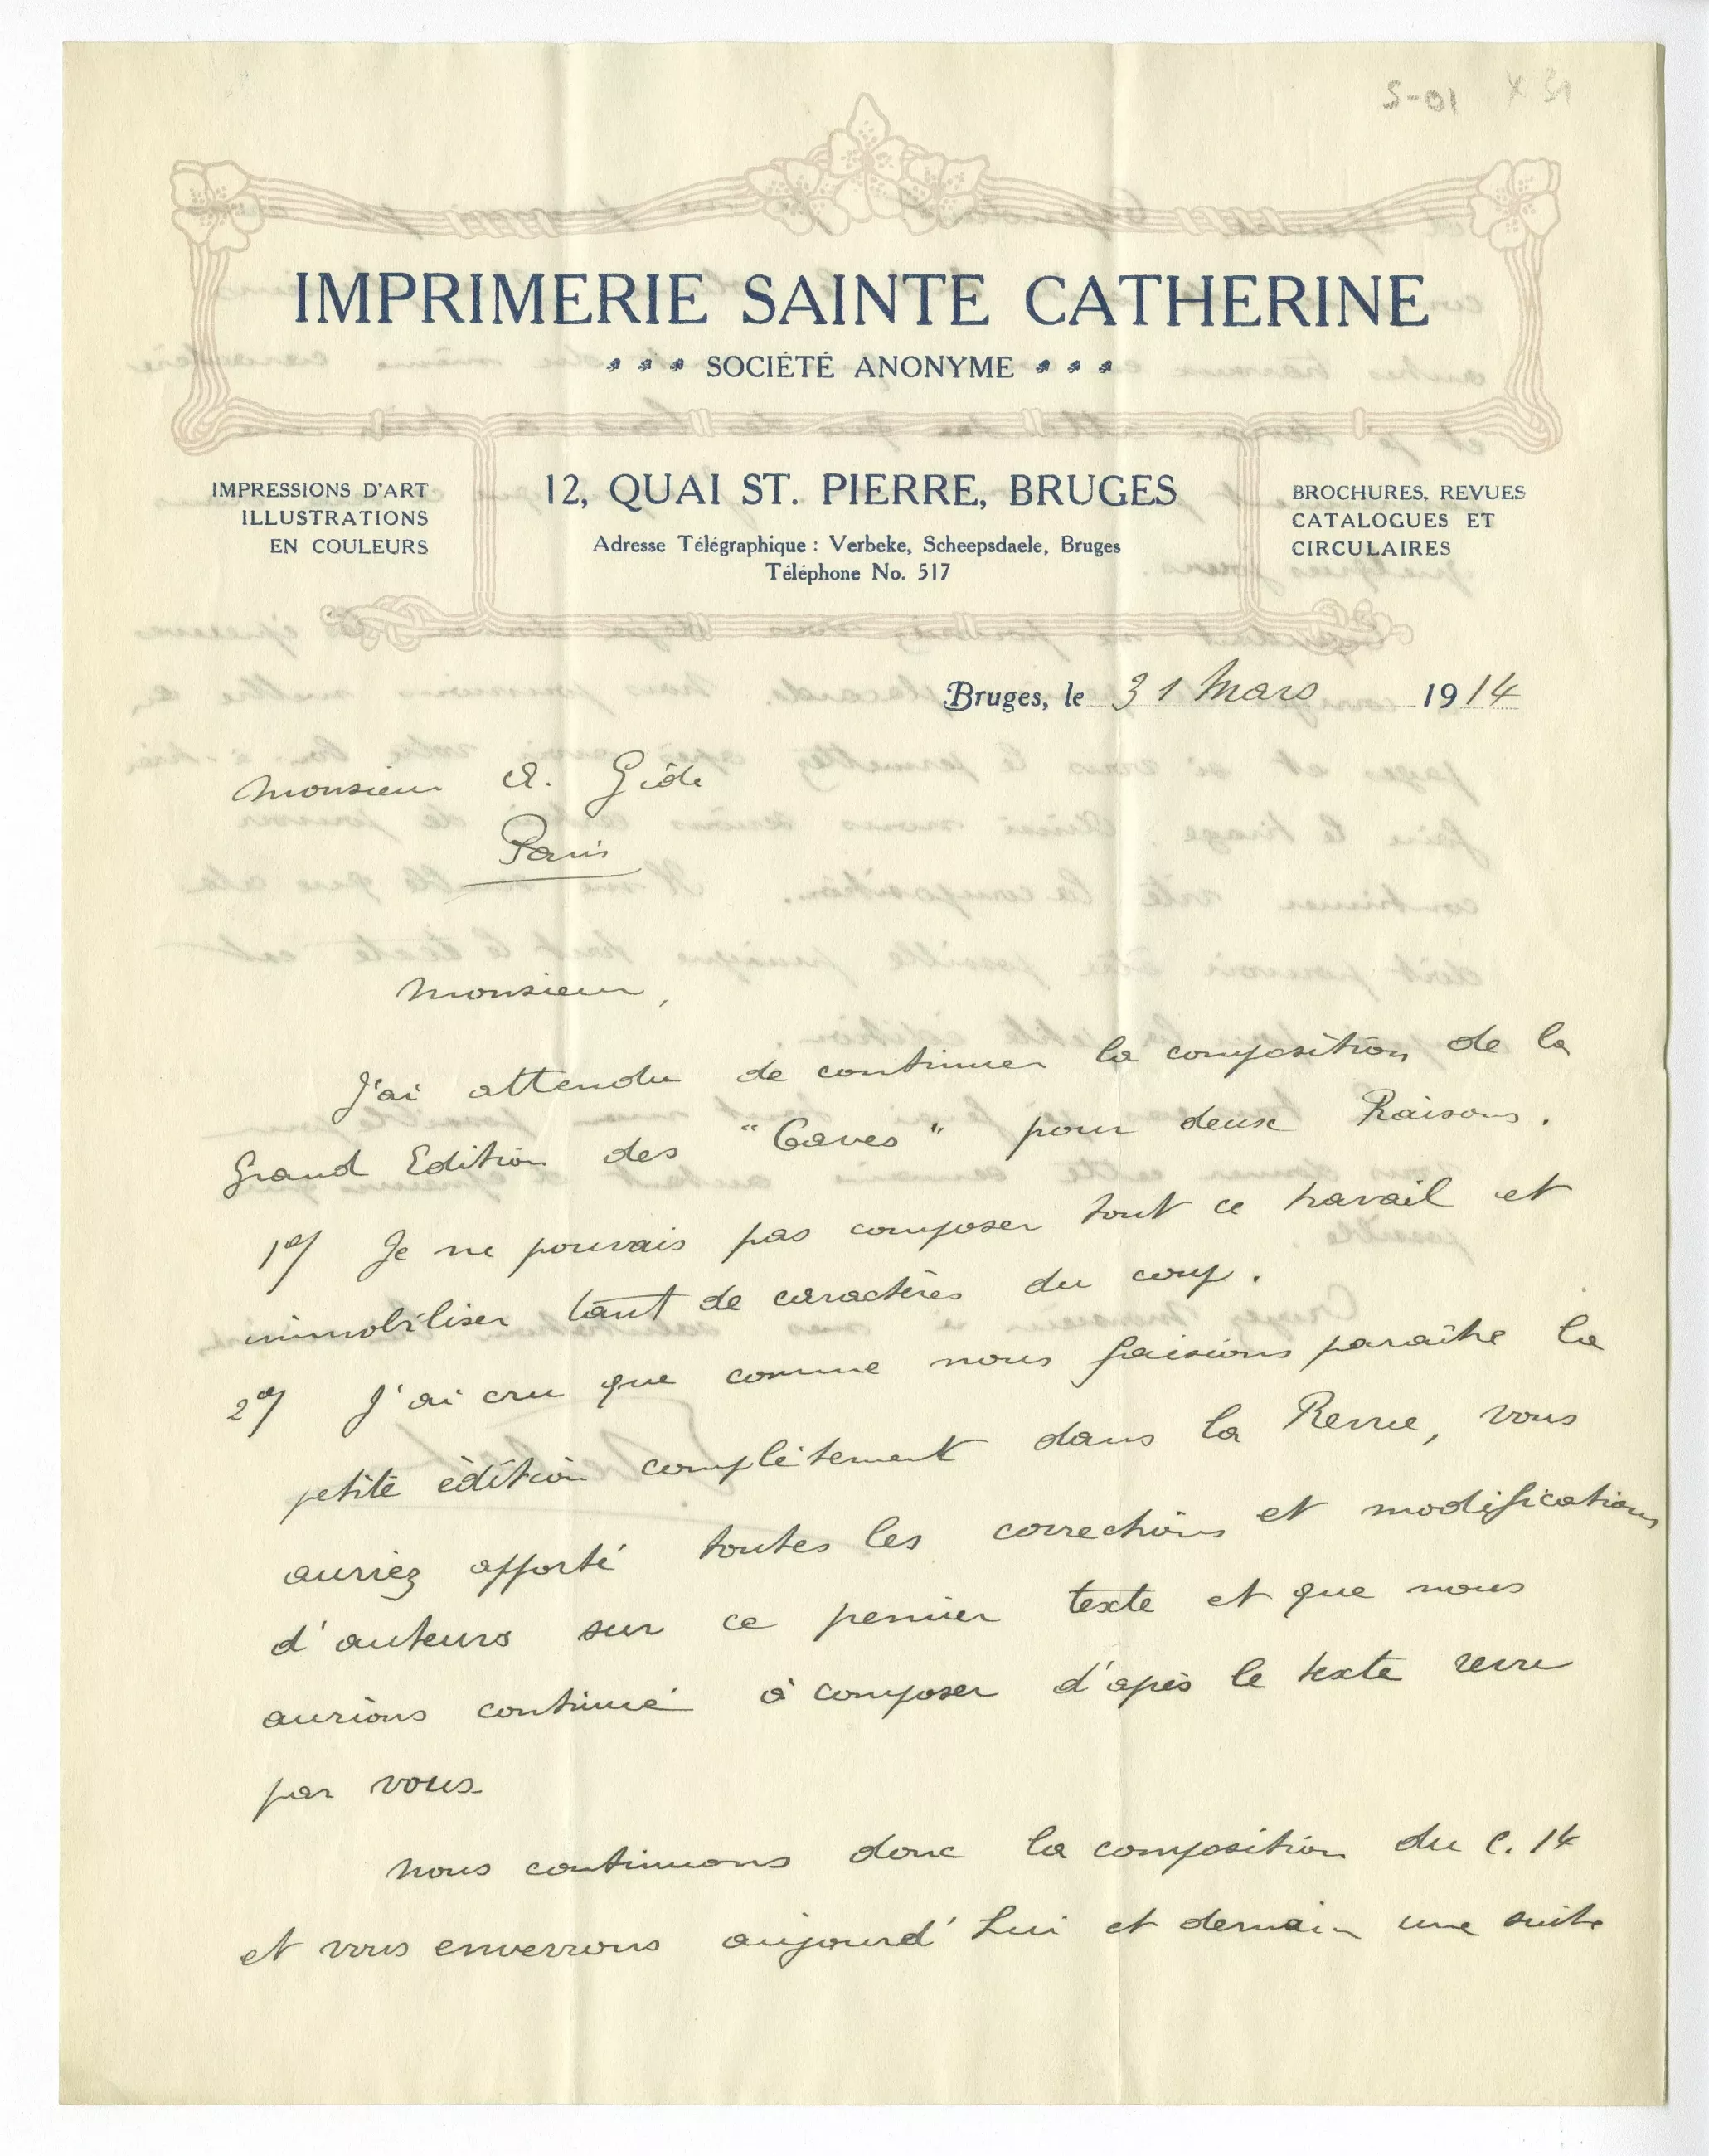 S-01 X 31
IMPRIMERIE SAINTE CATHERINE
SOCIÉTÉ ANONYME
IMPRESSIONS D'ART
ILLUSTRATIONS
EN COULEURS
12, QUAI ST. PIERRE, BRUGES
Adresse Télégraphique : Verbeke, Scheepsdaele, Bruges
Téléphone No. 517
BROCHURES, REVUES
CATALOGUES ET
CIRCULAIRES
Bruges, le 31 Mars 1914
Monsieur A. Gide
Paris
Monsieur,
J'ai attendu de continuer la composition de la
Grand Edition des "Caves" pour deux Raisons.
1°/ Je ne pouvais pas composer tout ce travail et
immobiliser tant de caractères du coup.
2°/ J'ai cru que comme nous faisions paraître la
petite édition complètement dans la Revue, vous
auriez apporté toutes les corrections et modifications
d'auteurs sur ce premier texte et que nous
aurions continué à composer d'après le texte revu
par vous.
Nous continuons donc la composition du C. 14
et vous enverrons aujourd'hui et demain une suite